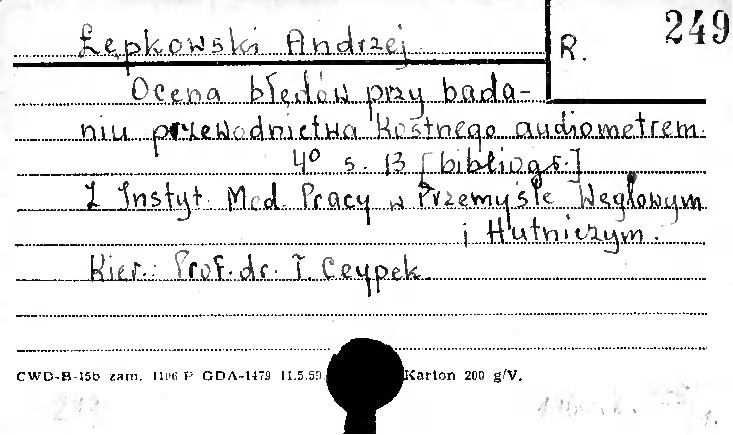 Łępkowski Andrzej
R. 249
Ocena błędów przy bada-
niu przewodnictwa kostnego audiometrem.
4° s. 13 [bibliogr.]
Z Instyt. Med. Pracy w Przemyśle Węglowym
i Hutniczym.
Kier.: Prof. dr. T. Ceypek.
CWD-B-15b zam. 1106 P GDA-1479 11.5.59 Karton 200 g/V.